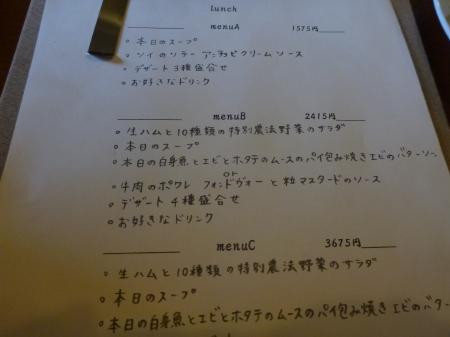 lunch
menuA 1575円
○ 本日のスープ
○ ソイのソテー アンチョビクリームソース
○ デザート3種盛合せ
○ お好きなドリンク
menuB 2415円
○ 生ハムと10種類の特別農法野菜のサラダ
○ 本日のスープ
○ 本日の白身魚とエビとホタテのムースのパイ包み焼き エビのバターソー
or
○ 牛肉のポワレ フォンドヴォーと粒マスタードのソース
○ デザート4種盛合せ
○ お好きなドリンク
menuC 3675円
○ 生ハムと10種類の特別農法野菜のサラダ
○ 本日のスープ
○ 本日の白身魚とエビとホタテのムースのパイ包み焼き エビのバター